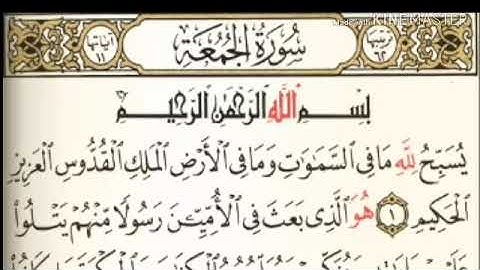 Made with KINEMASTER
ترتيبها ٦٢ سُورَةُ الْجُمُعَةِ آياتها ١١
بِسْمِ اللَّهِ الرَّحْمَٰنِ الرَّحِيمِ
يُسَبِّحُ لِلَّهِ مَا فِي السَّمَاوَاتِ وَمَا فِي الْأَرْضِ الْمَلِكِ الْقُدُّوسِ الْعَزِيزِ
الْحَكِيمِ ١ هُوَ الَّذِي بَعَثَ فِي الْأُمِّيِّينَ رَسُولًا مِنْهُمْ يَتْلُوا